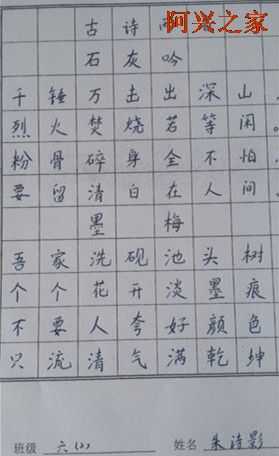 阿兴之家
古诗两首
石灰吟
千锤万击出深山。
烈火焚烧若等闲。
粉骨碎身全不怕
要留清白在人间。
墨梅
吾家洗砚池头树
个个花开淡墨痕
不要人夸好颜色
只流清气满乾坤
班级 六(2) 姓名 朱诗影